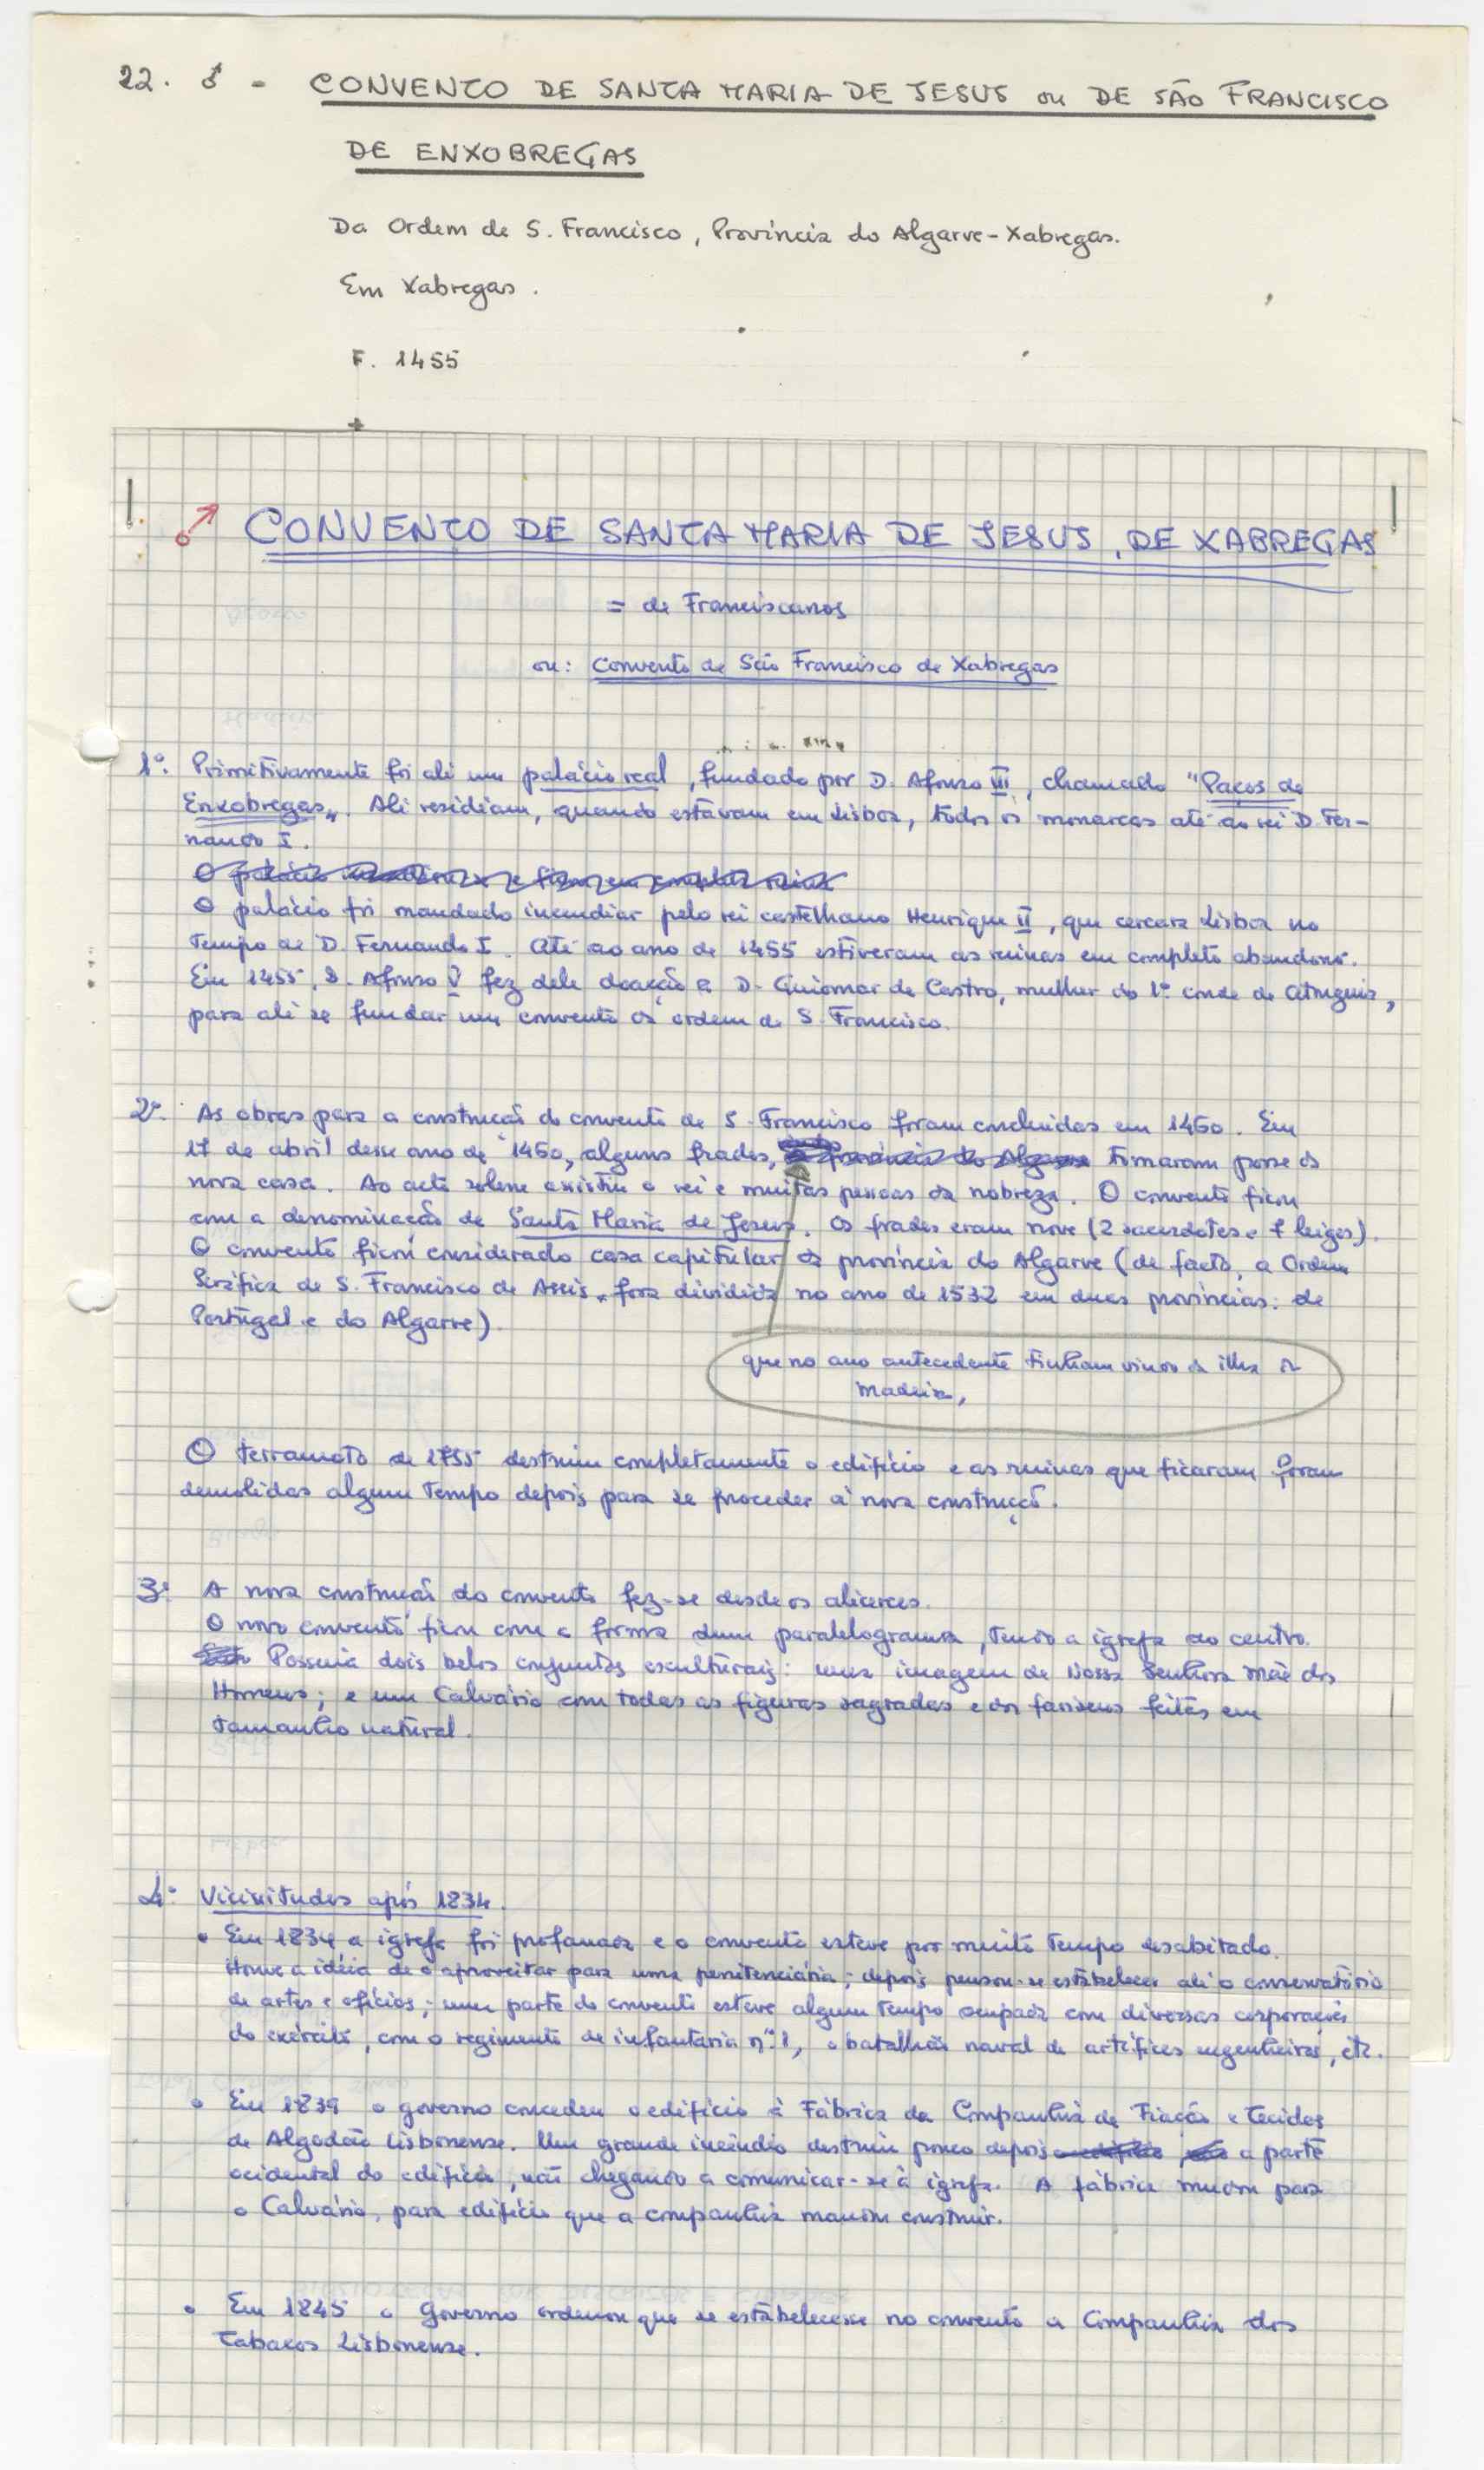 22. ♂ - CONVENTO DE SANTA MARIA DE JESUS ou DE SÃO FRANCISCO
DE ENXOBREGAS
Da Ordem de S. Francisco, Província do Algarve-Xabregas.
Em Xabregas.
F. 1455
♂ CONVENTO DE SANTA MARIA DE JESUS, DE XABREGAS
= de Franciscanos
ou: Convento de São Francisco de Xabregas
1º. Primitivamente foi ali um palácio real, fundado por D. Afonso III, chamado "Paços de
Enxobregas". Ali residiam, quando estavam em Lisboa, todos os monarcas até ao rei D. Fer-
nando I.
O palácio foi mandado incendiar pelo rei castelhano Henrique II, que cercara Lisboa no
tempo de D. Fernando I. Até ao ano de 1455 estiveram as ruinas em completo abandono.
Em 1455, D. Afonso V fez dele doação a D. Guiomar de Castro, mulher do 1º conde de Atouguia,
para ali se fundar um convento da ordem de S. Francisco.
2º. As obras para a construção do convento de S. Francisco foram concluidas em 1460. Em
17 de abril desse ano de 1460, alguns frades, a província do Algarve tomaram posse da
nova casa. Ao acto solene assistiu o rei e muitas pessoas da nobreza. O convento ficou
com a denominação de Santa Maria de Jesus. Os frades eram nove (2 sacerdotes e 7 leigos).
O convento ficou considerado casa capitular da província do Algarve (de facto, a Ordem
Seráfica de S. Francisco de Assis, fora dividida no ano de 1532 em duas províncias: de
Portugal e do Algarve).
que no ano antecedente tinham vindo da ilha da
Madeira,
O terramoto de 1755 destruiu completamente o edifício e as ruinas que ficaram foram
demolidas algum tempo depois para se proceder à nova construção.
3º. A nova construção do convento fez-se desde os alicerces.
O novo convento ficou com a forma dum paralelograma, tendo a igreja ao centro.
Possuia dois belos conjuntos esculturais: uma imagem de Nossa Senhora Mãe dos
Homens; e um Calvário com todas as figuras sagradas e dos fariseus feitas em
tamanho natural.
4º. Vicissitudes após 1834.
• Em 1834 a igreja foi profanada e o convento esteve por muito tempo desabitado.
Houve a idéia de o aproveitar para uma penitenciária; depois pensou-se estabelecer ali o conservatório
de artes e ofícios; uma parte do convento esteve algum tempo ocupada com diversas corporações
do exército, com o regimento de infantaria nº. 1, o batalhão naval de artífices engenheiros, etc.
• Em 1839 o governo concedeu o edifício à Fábrica da Companhia de Fiação e Tecidos
de Algodão Lisbonense. Um grande incêndio destruiu pouco depois a parte
ocidental do edifício, não chegando a comunicar-se à igreja. A fábrica mudou para
o Calvário, para edifício que a companhia mandou construir.
• Em 1845 o Governo ordenou que se estabelecesse no convento a Companhia dos
Tabacos Lisbonense.